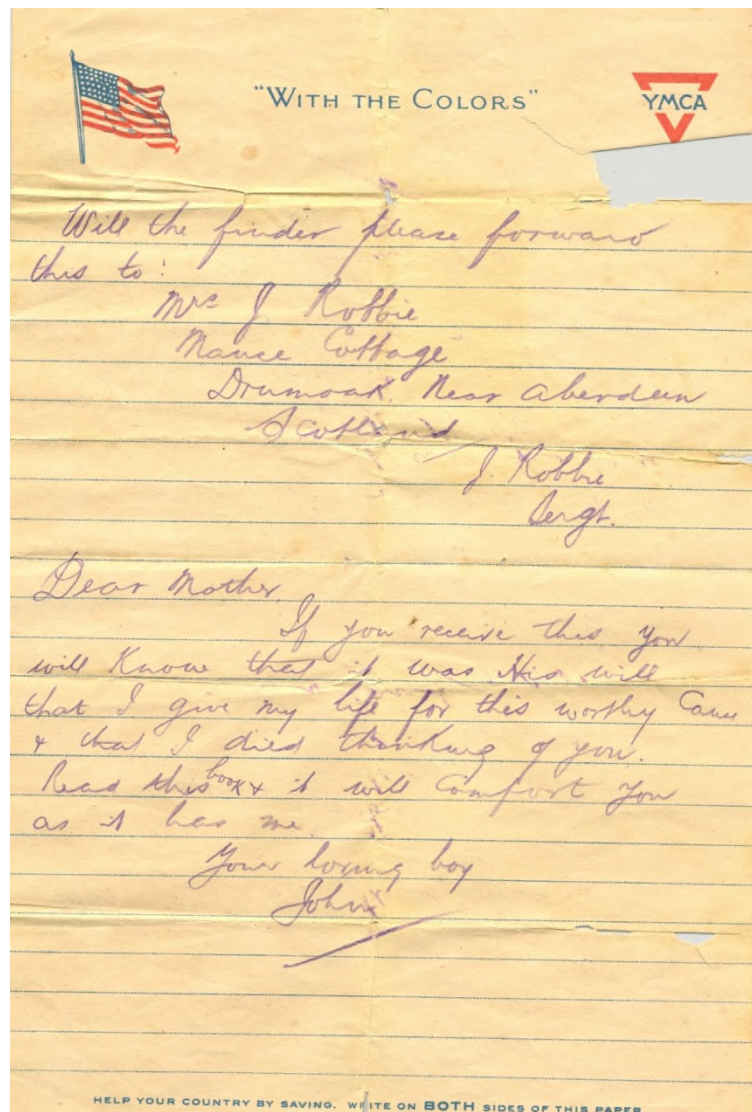 "WITH THE COLORS"
YMCA
Will the finder please forward
this to:
Mrs J Robbie
Manse Cottage
Drumoak. Near Aberdeen
Scotland
J. Robbie
Sergt.
Dear Mother,
If you receive this you
will know that it was His will
that I give my life for this worthy Cause
& that I died thinking of you.
Read this book & it will comfort you
as it has me.
Your loving boy
John
HELP YOUR COUNTRY BY SAVING. WRITE ON BOTH SIDES OF THIS PAPER